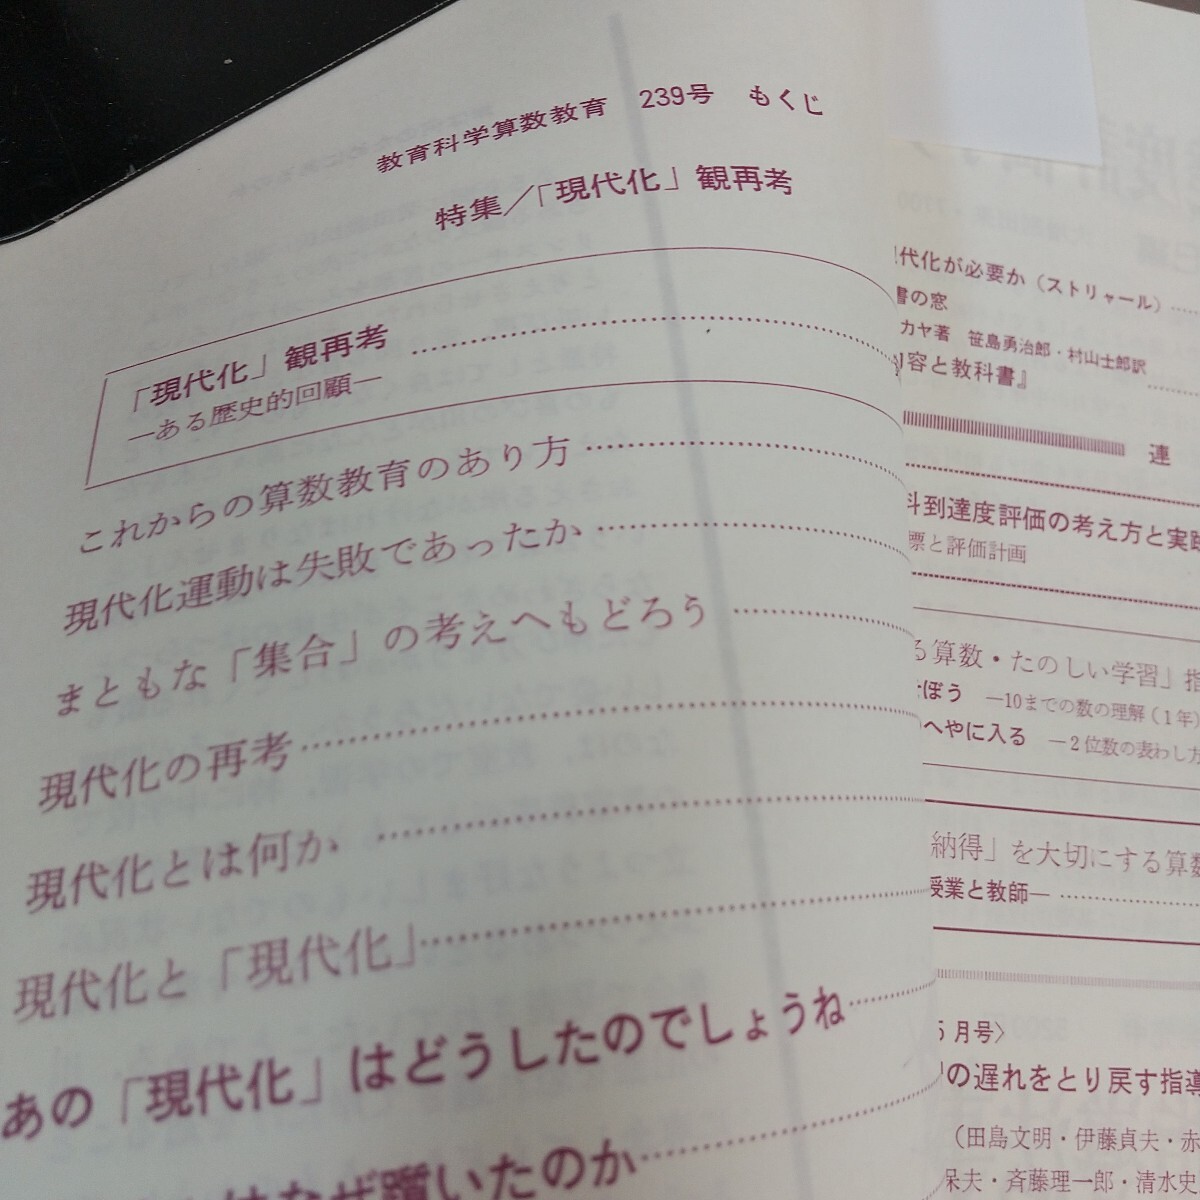 教育科学算数教育 239号 もくじ
特集/「現代化」観再考
「現代化」観再考
―ある歴史的回顧―
これからの算数教育のあり方
現代化運動は失敗であったか
まともな「集合」の考えへもどろう
現代化の再考
現代化とは何か
現代化と「現代化」
あの「現代化」はどうしたのでしょうね
はなぜ躓いたのか
代化が必要か（ストリャール）
書の窓
カヤ著 笹島勇治郎・村山士郎訳
容と教科書』
連
科到達度評価の考え方と実践
票と評価計画
る算数・たのしい学習」指
そぼう ―10までの数の理解（1年）
のへやに入る ―2位数の表わし方
納得」を大切にする算数
授業と教師―
5月号〉
の遅れをとり戻す指導
（田島文明・伊藤貞夫・赤
保夫・斉藤理一郎・清水史